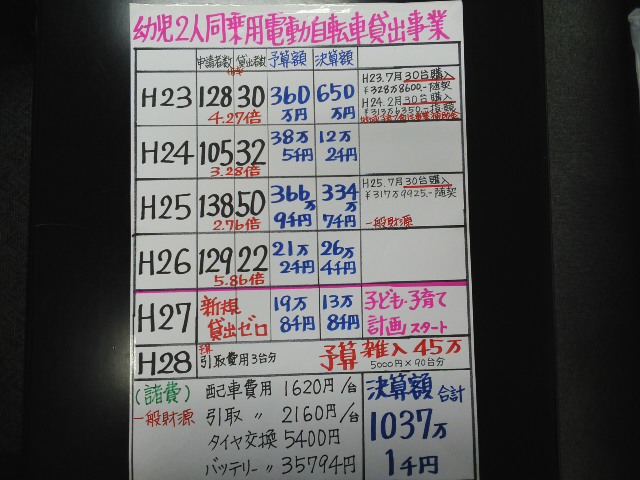 幼児2人同乗用電動自転車貸出事業
申請者数 貸出者数 予算額 決算額
H23 128 30 360万円 650万円 H23.7月30台購入
¥328万8600.-随契
H24.2月30台購入
¥313万6350.-指競
倍率 4.27倍
H24 105 32 38万5千円 12万2千円
3.28倍
H25 138 50 366万9千円 334万7千円 H25.7月30台購入
¥317万9925.-随契
2.76倍 一般財源
H26 129 22 21万2千円 26万4千円
5.86倍
H27 新規貸出ゼロ 19万8千円 13万8千円 子ども・子育て計画スタート
H28 予算 引取費用3台分 予算 雑入 45万
5000円×90台分
(諸費) 配車費用 1620円/台 決算額合計
一般財源 引取 〃 2160円/台 1037万1千円
タイヤ交換 5400円
バッテリー〃 35794円